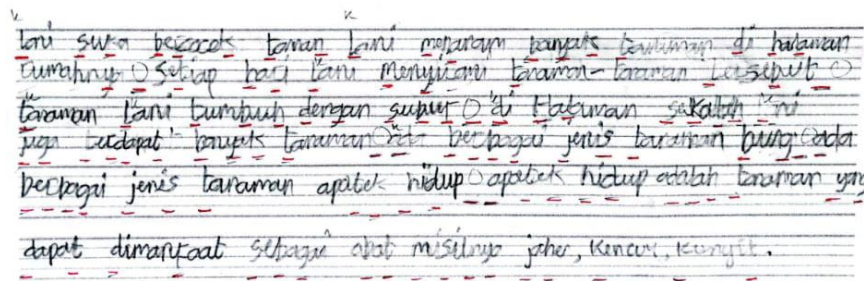 lani suka bercocok tanan lani menanam banyak tanaman di halaman
rumahnya setiap hari lani menyirami tanaman-tanaman tersebut
tanaman lani tumbuh dengan subur di Halaman sekolah ini
juga terdapat banyak tanaman ada berbagai jenis tanaman bung ada
berbagai jenis tanaman apotek hidup apotek hidup adalah tanaman yang
dapat dimanfaat sebagai obat misilnya jaher, kencur, kunyit.